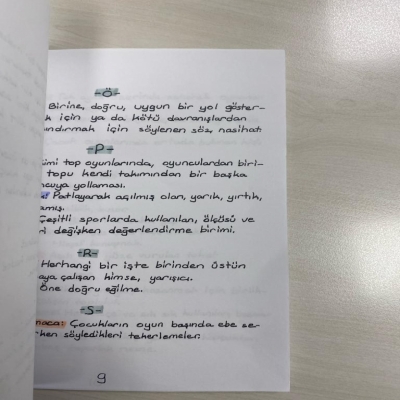 -Ö-
Birine, doğru, uygun bir yol göster-
k için ya da kötü davranışlardan
ındırmak için söylenen söz, nasihat.
-P-
imi top oyunlarında, oyunculardan biri-
topu kendi takımından bir başka
ncuya yollaması.
Patlayarak açılmış olan, yarık, yırtık,
amış.
Çeşitli sporlarda kullanılan, ölçüsü ve
ri değişken değerlendirme birimi.
-R-
Herhangi bir işte birinden üstün
aya çalışan kimse, yarışçı.
Öne doğru eğilme.
-S-
maca: Çocukların oyun başında ebe se-
rken söyledikleri tekerlemeler.
9